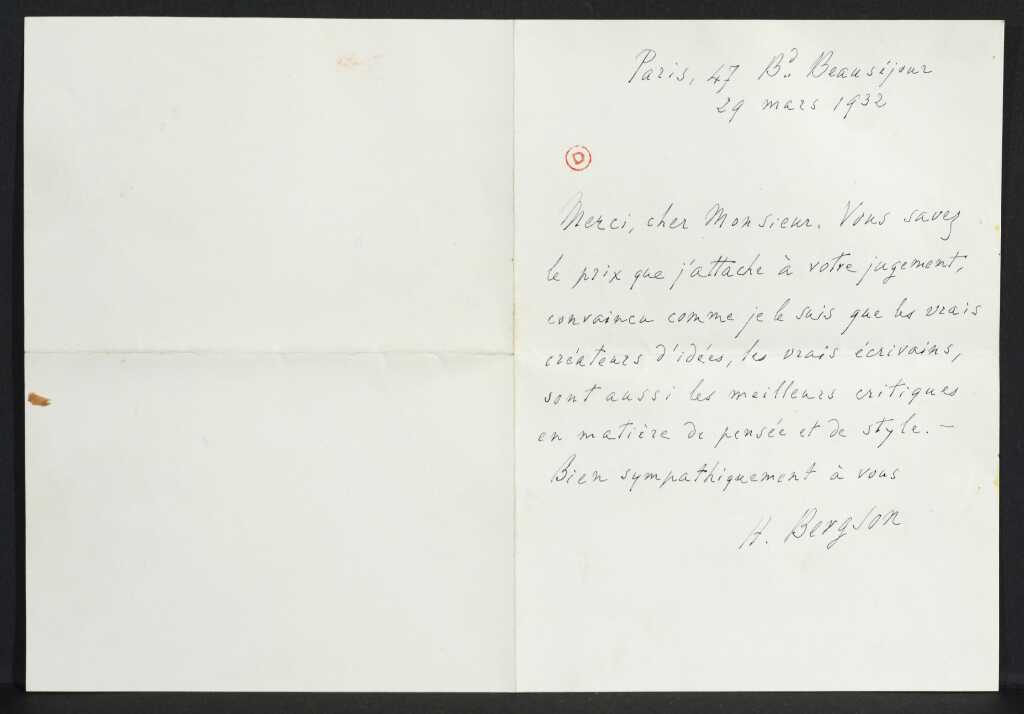 Paris, 47 Bd. Beauséjour
29 mars 1932
D
Merci, cher Monsieur. Vous savez
le prix que j'attache à votre jugement,
convaincu comme je le suis que les vrais
créateurs d'idées, les vrais écrivains,
sont aussi les meilleurs critiques
en matière de pensée et de style. —
Bien sympathiquement à vous
H. Bergson